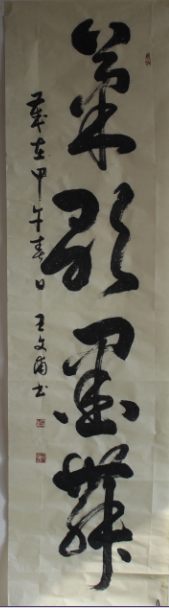 筆歌墨舞
歲在甲午春日 王文甫书